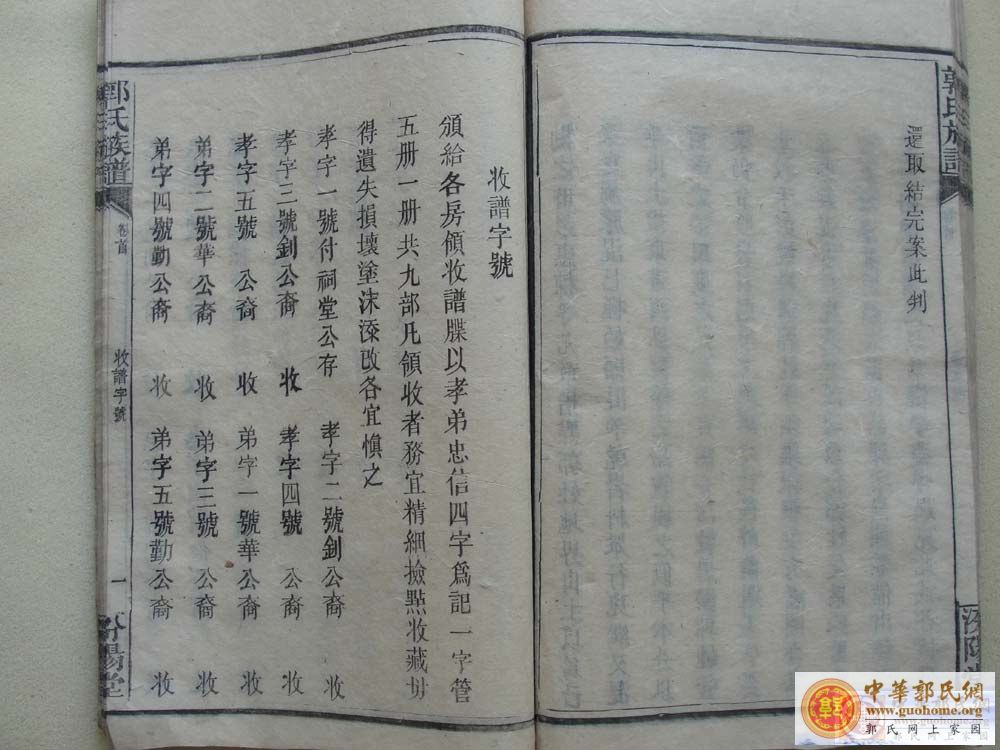 郭氏族譜
還取結完案此判
汾陽堂
收譜字號
頒給各房領收譜牒以孝弟忠信四字爲記一字管
五册一册共九部凡領收者務宜精細撿㸃收藏毋
得遺失損壞塗沫添改各宜慎之
孝字一號付祠堂公存 孝字二號釗公裔 收
孝字三號釗公裔 收 孝字四號 公裔 收
孝字五號 公裔 收 弟字一號華公裔 收
弟字二號華公裔 收 弟字三號 公裔 收
弟字四號勤公裔 收 弟字五號勤公裔 收
郭氏族譜
卷首
收譜字號
一
汾陽堂
中華郭氏網
www.guohome.org
郭氏网上家园